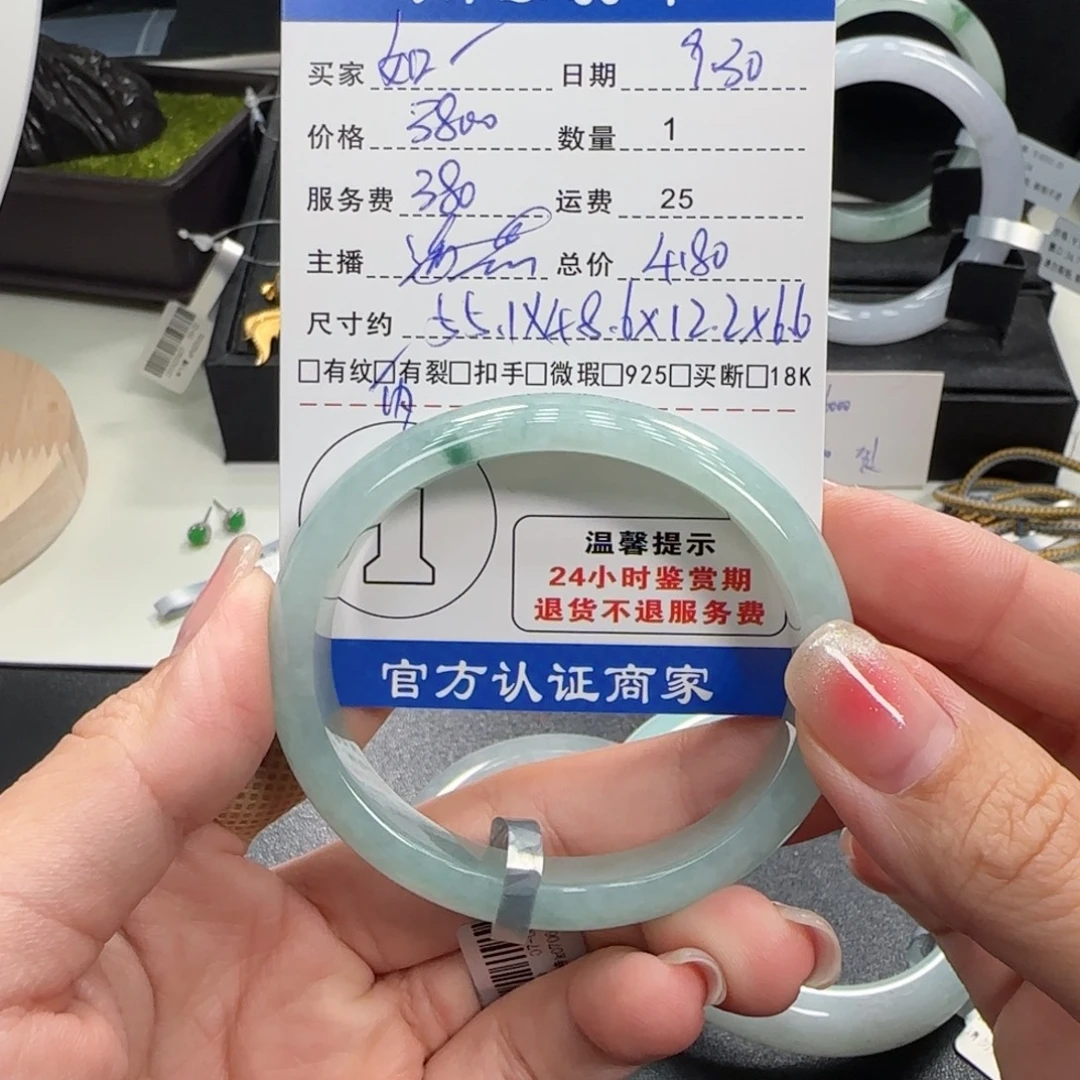 买家 如一 日期 9.30
价格 3800 数量 1
服务费 380 运费 25
主播 总价 4180
尺寸约 55.1X48.6X12.2X6.6
□有纹□有裂□扣手□微瑕□925□买断□18K
温馨提示
24小时鉴赏期
退货不退服务费
官方认证商家